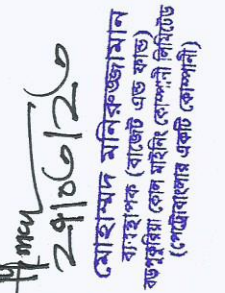 ২৭।০৫।২৫
মোহাম্মদ মনিরুজ্জামান
ব্যবস্থাপক (বাজেট এন্ড ফান্ড)
বড়পুকুরিয়া কোল মাইনিং কোম্পানী লিমিটেড
(পেট্রোবাংলার একটি কোম্পানী)